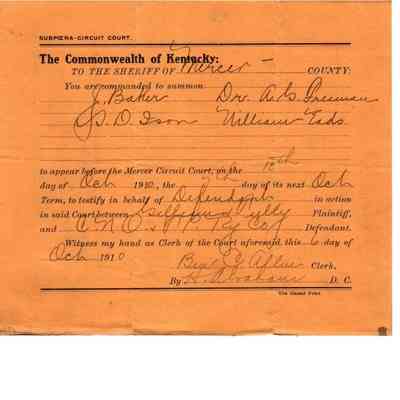 SUBPŒNA-CIRCUIT COURT.
The Commonwealth of Kentucky:
TO THE SHERIFF OF Mercer COUNTY:
You are commanded to summon
J. Baker Dr. A. S. Freeman
J. D. Ison William Eads
to appear before the Mercer Circuit Court, on the 12th
day of Oct 1910, the day of its next Oct
Term, to testify in behalf of Defendant in action
in said Court between Plaintiff,
and C N O & T P Ry Co Defendant.
Witness my hand as Clerk of the Court aforesaid, this 6 day of
Oct 1910
Ben C. Allin Clerk,
By D. C.